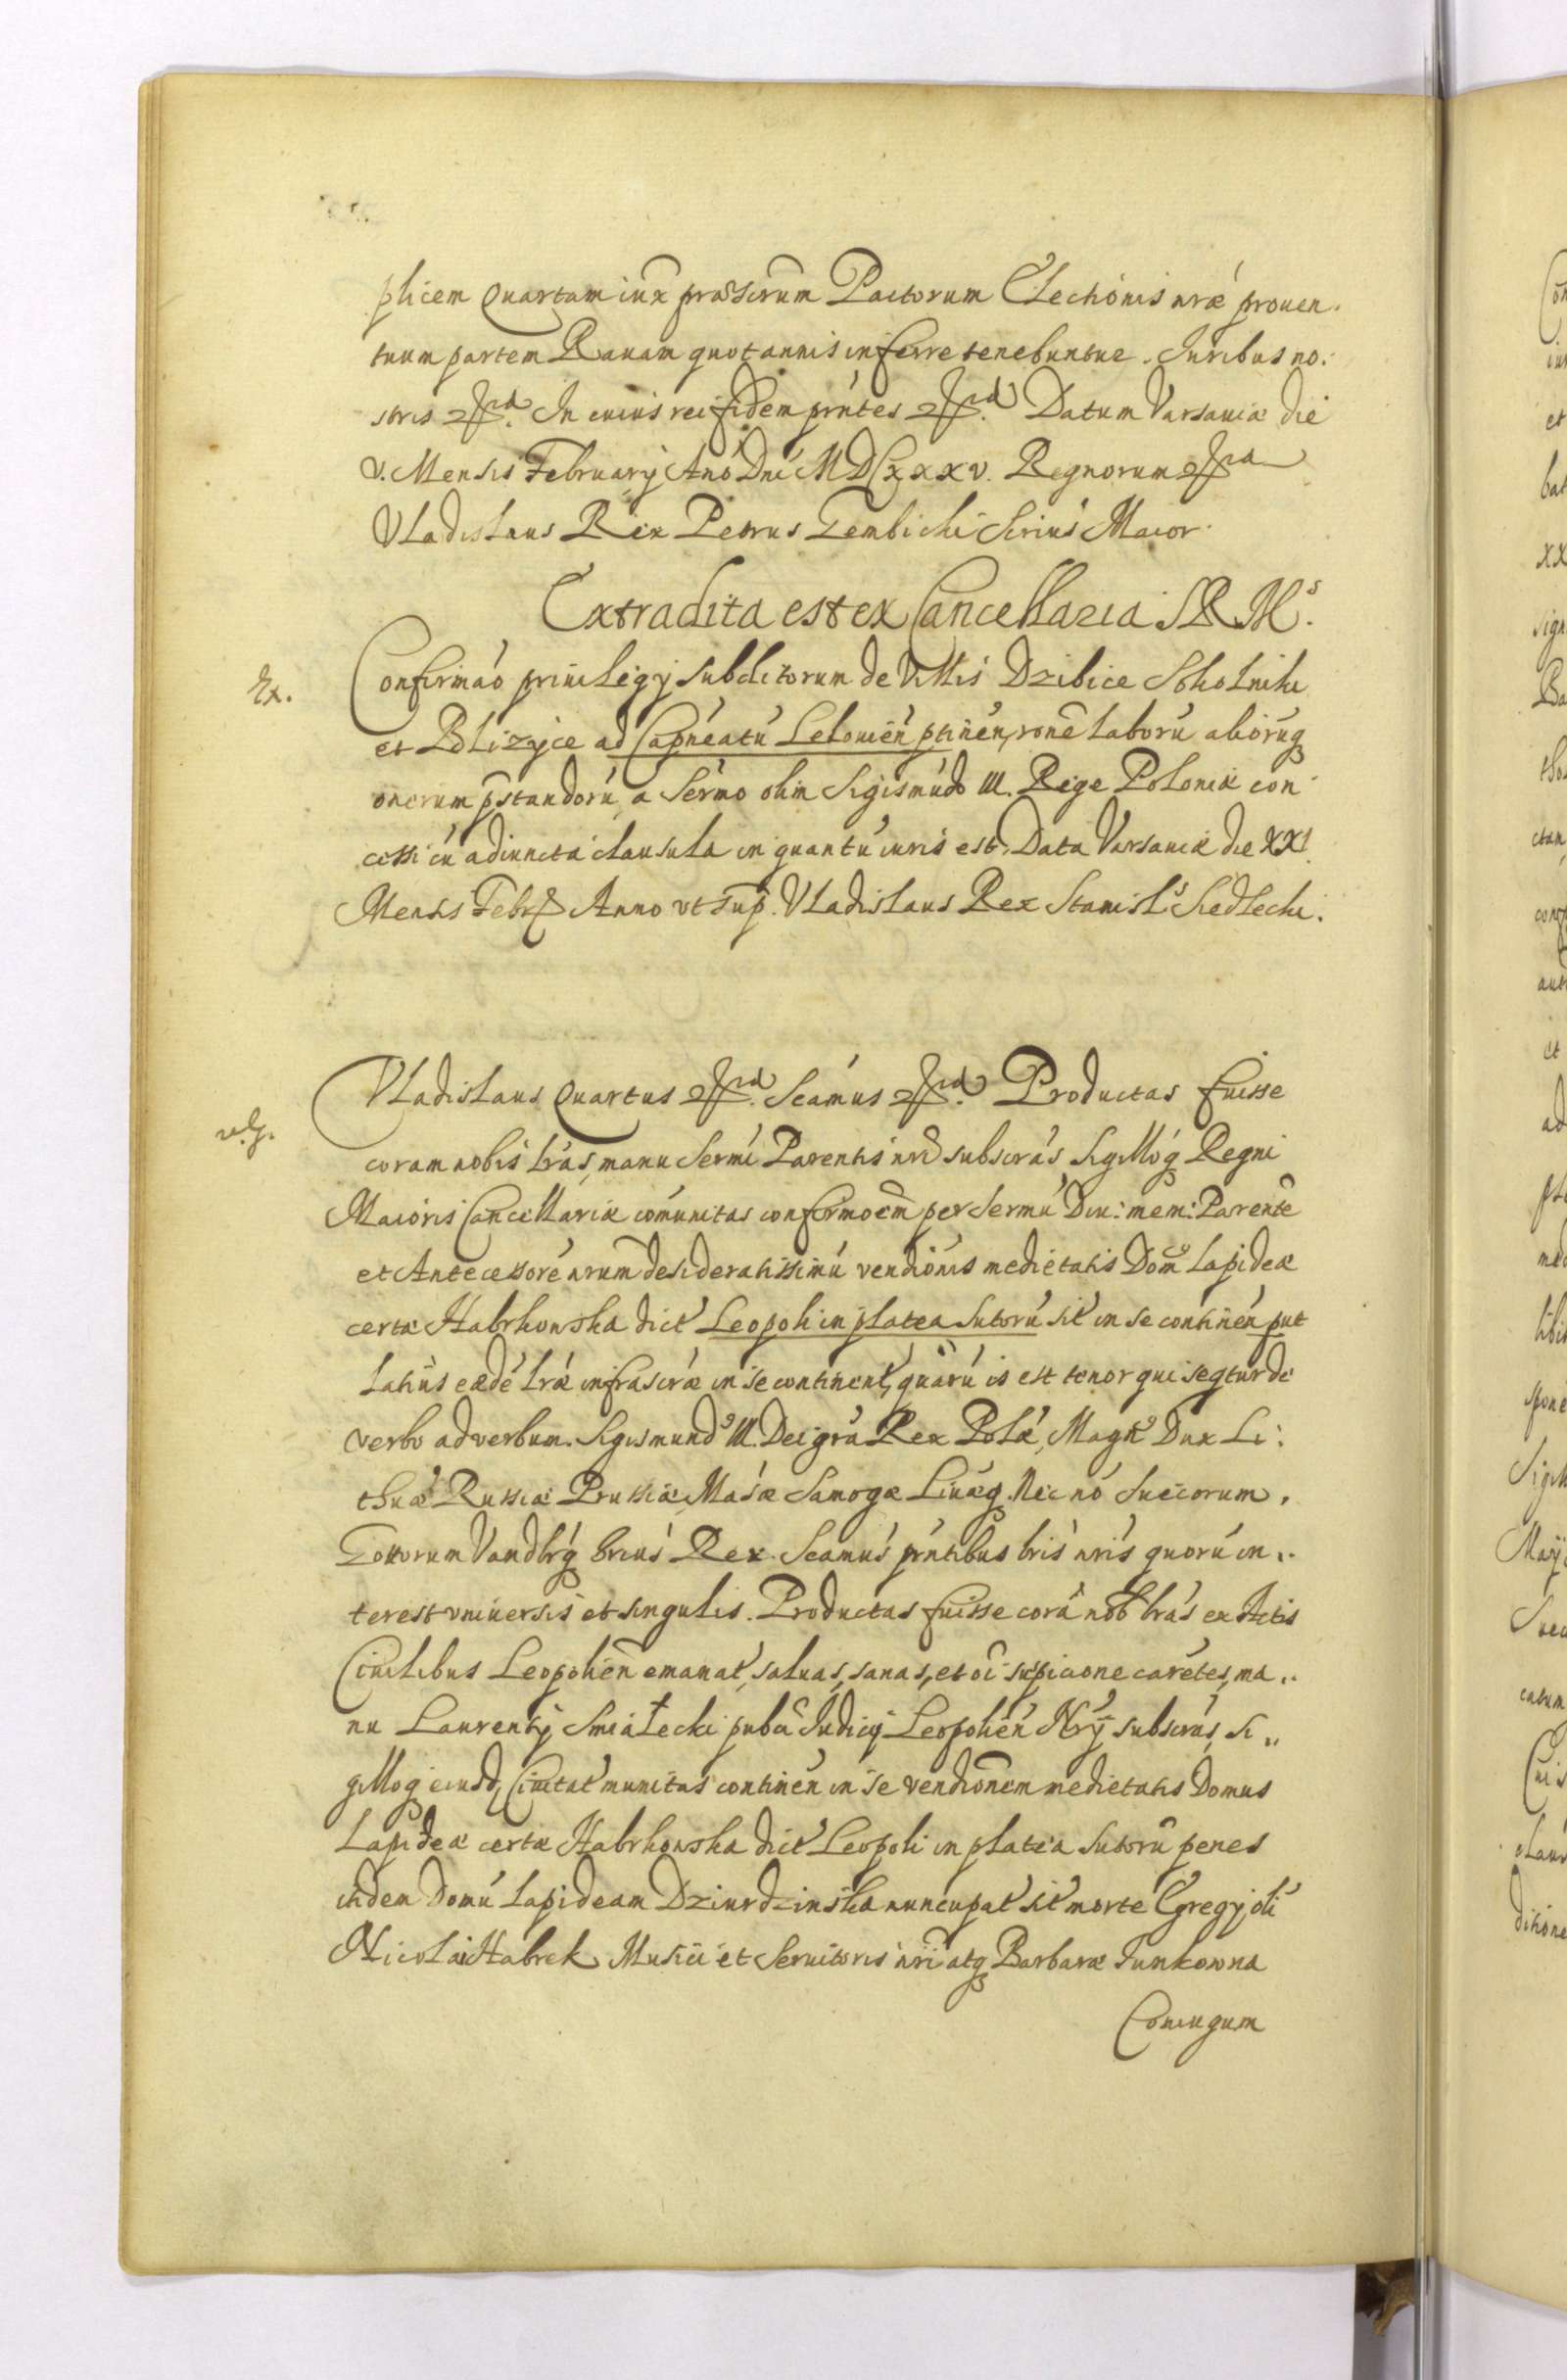 plicem Quartam iux̃ præscrum̃ Pactorum Electionis nræ prouen.
tuum partem Rauam quotannis inferre tenebuntur. Iuribus no.
stris &. In cuius rei fidem prñtes &. Datum Varsauiæ die
V. Mensis February Anõ Dnĩ MDCxxxv. Regnorum &
Vladislaus Rex Petrus Gembicki Scrius Maior.
Extradita est ex Cancellaria S R Mˢ.
Ex. Confirmaó priuilegy subditorum de Villis Dzibice Skolniki
et Bolizyce ad Capneatú Lelouień ptineń, roné laború aliorúq
onerum pstandorú, a Sermo olim Sigismúdo III. Rege Poloniæ con
cessi cú adiuncta clausula in quantú iuris est. Data Varsauiæ die XXI.
Mensis Febr Anno vt sup. Vladislaus Rex Stanislˢ Siedlecki.
Vladislaus Quartus &. Scamus &. Productas fuisse
coram nobis lras, manu Sermi Parentis nri subscras, Sigilloq Regni
Maioris Cancellariæ comunitas confirmoem per Sermú Diu: mem: Parente
et Antecessoré nrum desideratissimú vendionis medietatis Dom Lapideæ
certæ Habrkowska dict Leopoli in platea Sutorú sit in se continen put
latius eædé lræ infrascræ in se continent, quarú is est tenor qui seqtur de
verbo ad verbum. Sigismund III. Dei gra Rex Polæ, Mag Dux Li:
thuæ Russiæ Prussiæ, Masæ Samogæ Liuæq. Nec nó Suecorum,
Gottorum Vandlrq hrius Rex. Scamus prntibus lris nris quorú in..
terest vniuersis et singulis. Productas fuisse corã nob lras ex Actis
Ciuilibus Leopolien emanat, saluas, sanas, et oi suspicione carétes, ma..
nu Laurenty Smiałecki pubci Iudicy Leopolien Nry subscras, Si..
gilloq eiusd, Ciuitat munitas continen in se vendionem medietatis Domus
Lapideæ certæ Habrkowska dict Leopoli in platea Sutorũ penes
itidem Domú Lapideam Dziurdzinska nuncupat sit morte Egregy oli
Nicolai Habrek Musici et Seruitoris nri atq Barbaræ Iunkowna
Coniugum